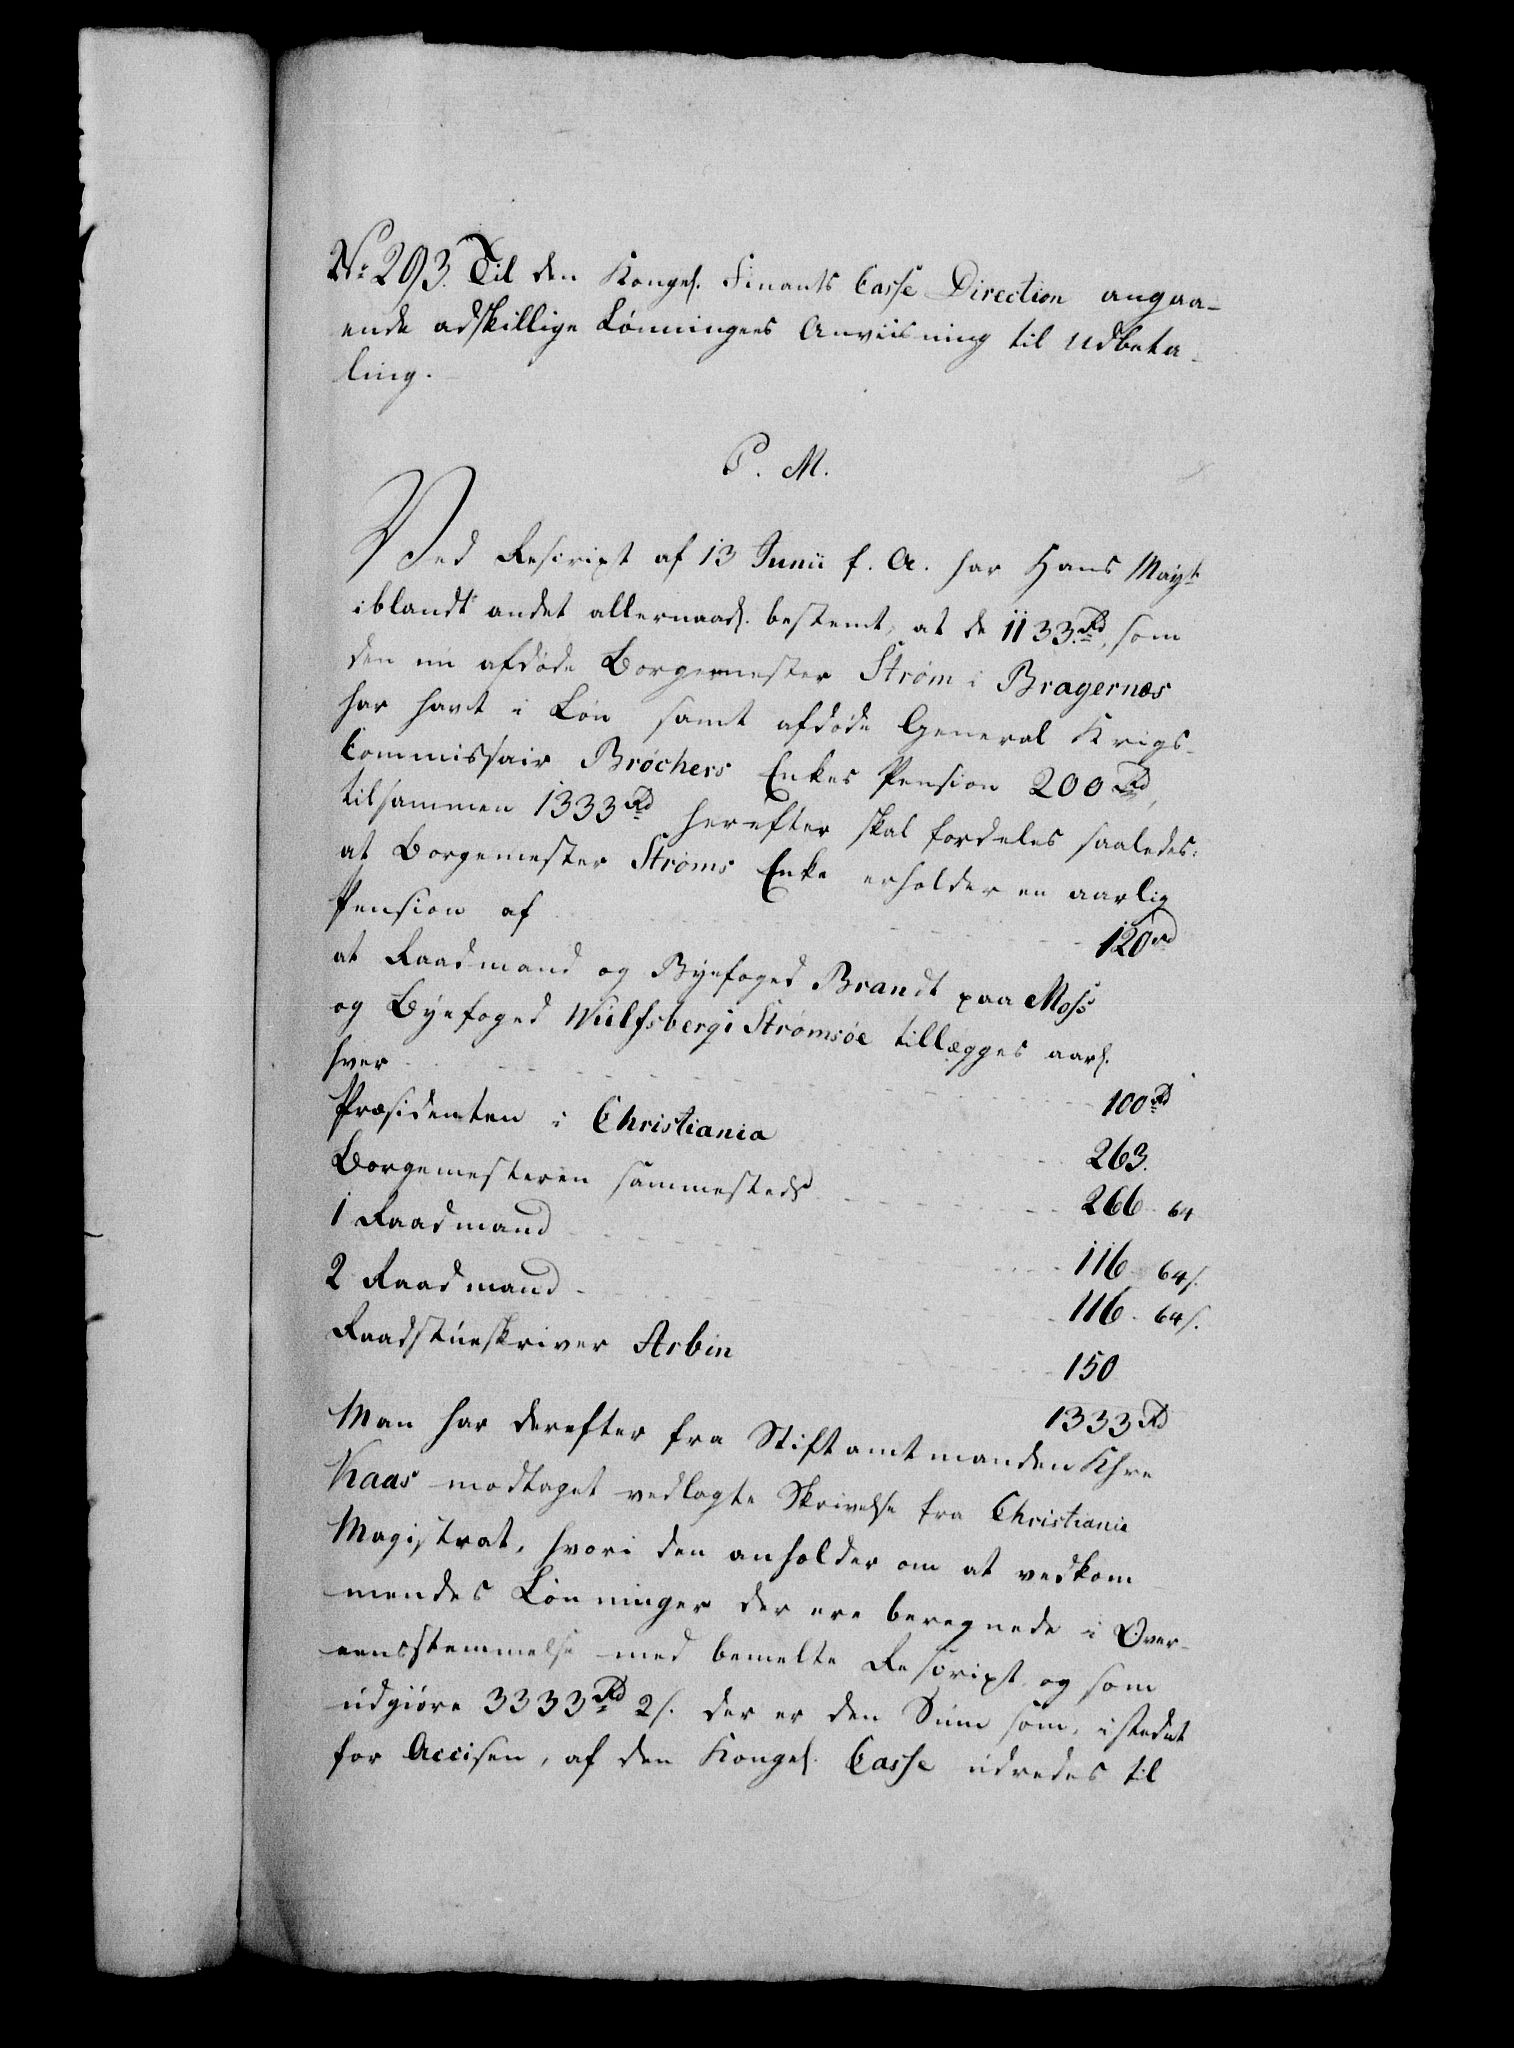 No 293. Til den Kongel. Finants Casse Direction angaa-
ende adskillige Lønningers Anviisning til Udbeta-
ling.
P. M.
Ved Rescript af 13 Junii f. A. har Hans Mayt
iblandt andet allernaad. bestemt, at de 1133 Rd, som
den nu afdøde Borgemester Strøm i Bragernæs
har havt i Løn samt afdøde General Krigs-
Commissair Brøchers Enkes Pension 200 Rd,
tilsammen 1333 Rd herefter skal fordeles saaledes:
at Borgemester Strøms Enke erholder en aarlig
Pension af 120 Rd
at Raadmand og Byefoged Brandt paa Moss
og Byefoged Wulfsberg i Strømsøe tillægges aarl.
hver 100 Rd
Præsidenten i Christiania 263.
Borgemesteren sammesteds 266 - 64
1 Raadmand 116 - 64 s.
2 Raadmand 116 - 64 s.
Raadstueskriver Arbin 150
1333 Rd
Man har derefter fra Stiftamtmanden Khre
Kaas modtaget vedlagte Skrivelse fra Christiania
Magistrat, hvori den anholder om at vedkom
mendes Lønninger der ere beregnede i Over-
eensstemmelse med bemelte Rescript og som
udgiøre 3333 Rd 2 s. der er den Sum som, istedet
for Accisen, af den Kongel. Casse udredes til